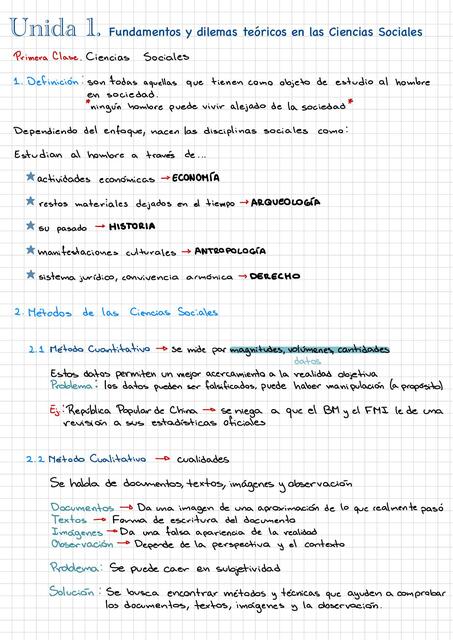 Unida 1. Fundamentos y dilemas teóricos en las Ciencias Sociales
Primera Clase. Ciencias Sociales
1. Definición: son todas aquellas que tienen como objeto de estudio al hombre
en sociedad.
*ningún hombre puede vivir alejado de la sociedad*
Dependiendo del enfoque, nacen las disciplinas sociales como:
Estudian al hombre a través de...
★ actividades económicas → ECONOMÍA
★ restos materiales dejados en el tiempo → ARQUEOLOGÍA
★ su pasado → HISTORIA
★ manifestaciones culturales → ANTROPOLOGÍA
★ sistema jurídico, convivencia armónica → DERECHO
2. Métodos de las Ciencias Sociales
2.1 Método Cuantitativo → se mide por magnitudes, volúmenes, cantidades
datos
Estos datos permiten un mejor acercamiento a la realidad objetiva
Problema: los datos pueden ser falsificados, puede haber manipulación (a propósito)
Ej: República Popular de China → se niega a que el BM y el FMI le de una
revisión a sus estadísticas oficiales
2.2 Método Cualitativo → cualidades
Se habla de documentos, textos, imágenes y observación
Documentos → Da una imagen de una aproximación de lo que realmente pasó
Textos → Forma de escritura del documento
Imágenes → Da una falsa apariencia de la realidad
Observación → Depende de la perspectiva y el contexto
Problema: Se puede caer en subjetividad
Solución: Se busca encontrar métodos y técnicas que ayuden a comprobar
los documentos, textos, imágenes y la observación.